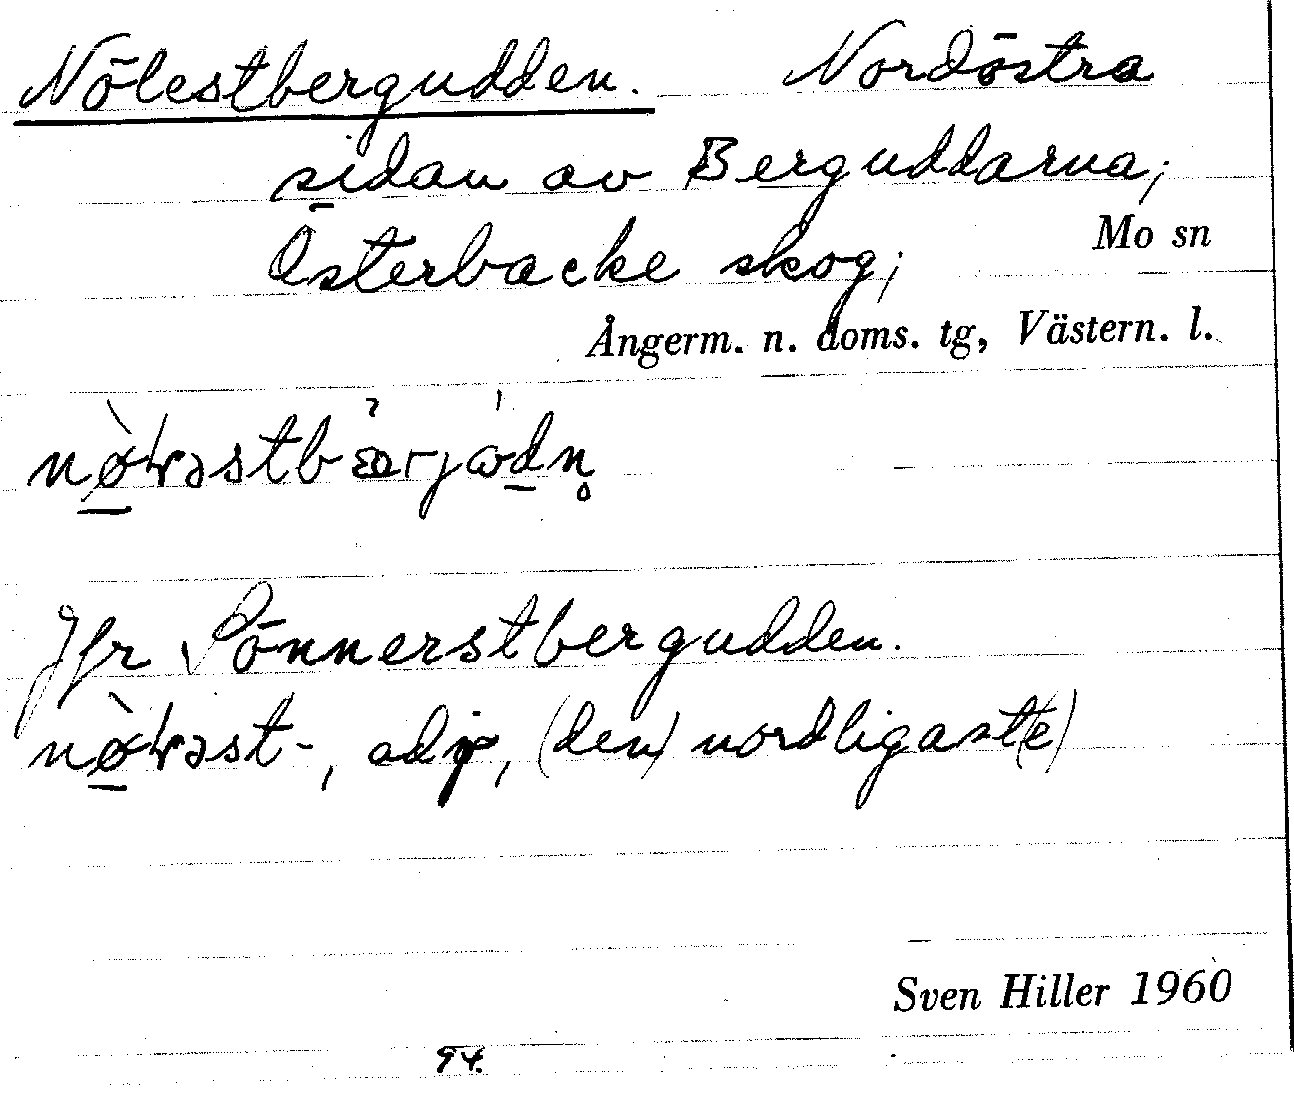 Nölestbergudden. Nordöstra
sidan av Berguddarna;
Österbacke skog; Mo sn
Ångerm. n. doms. tg, Västern. l.
Jfr Sönnerstbergudden.
adj, (den) nordligast(e)
Sven Hiller 1960
94.